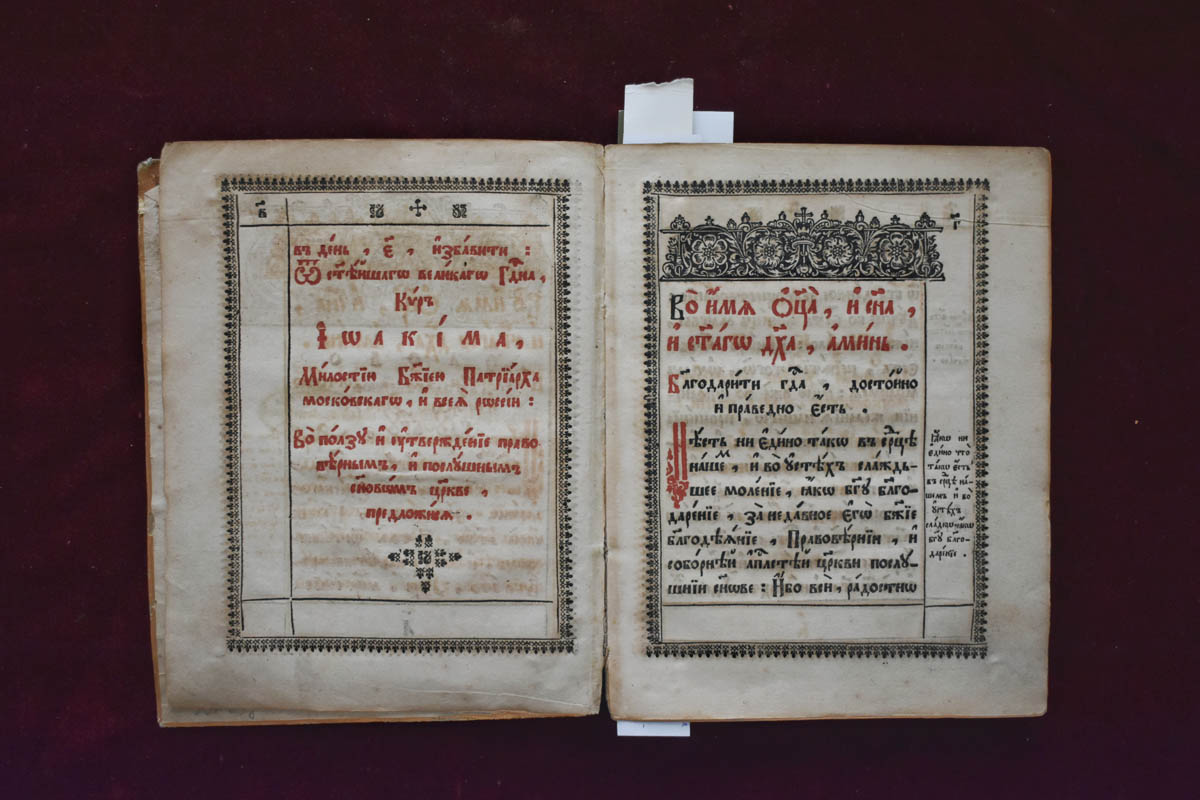 въ де́нь, є҃, и҆зба́вити :
Ѿ ст҃ѣ́йшагѡ вели́кагѡ Гдⷭ҇и́на,
Кѵ́ръ
І҆ѡакі́ма,
Ми́лостїю Бж҃їею Патрїа́рха
моско́вскагѡ, и҆ всеѧ̀ рѡссі́и :
Во̀ по́лзу и҆ ᲂу҆твержде́нїе право
вѣ́рнымъ, и҆ послу́шнымъ
сн҃овѡ́мъ цр҃кве,
предложи́сѧ.
Во̀ и҆́мѧ Ѻ҆ц҃а̀, и҆ сн҃а,
и҆ ст҃а́гѡ дх҃а, а҆ми́нь.
Бл҃годари́ти гдⷭ҇а, досто́йно
и҆ пра́ведно є҆́сть.
Нѣ́сть ни є҆ди́но та́кѡ въ срⷣцѣ
на́шемъ, и҆ во ᲂу҆стѣ́хъ сла́ждь-
шее моле́нїе, ꙗ҆́кѡ бг҃у бл҃го-
даре́нїе, за неда́вное є҆гѡ̀ бж҃їе
бл҃годѣѧ́нїе, Правовѣ́рнїи, и҆
собо́рнѣй а҆пⷭ҇лстѣй цр҃кви послу́-
шнїи сн҃ове : И҆́бо вси̑, ра́достнѡ
ни
є҆ди́но что̀
та́кѡ є҆́сть
въ срⷣцѣ на́-
шемъ и҆ во
ᲂу҆стѣ́хъ
бг҃у бл҃го-
даре́нїе.